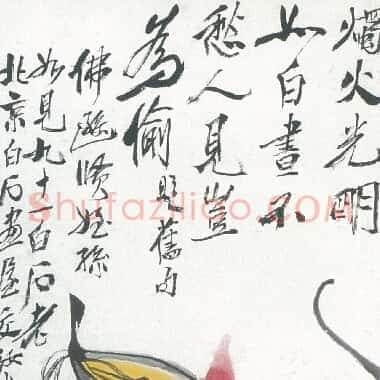 燭火光明
如白晝不
愁人見豈
為偷 舊句
佛 賢姪孫
如見九十一白石老
北京白石畫屋
Shufaziliao.COM